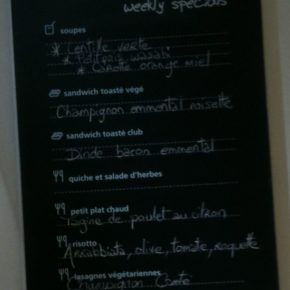 weekly specials
soupes
* Lentille verte
* Potimaron wasabi
* Carotte orange miel
sandwich toasté végé
Champignon emmental noisette
sandwich toasté club
Dinde bacon emmental
quiche et salade d'herbes
petit plat chaud
Tagine de poulet au citron
risotto
Arrabbiata, olive, tomate, roquette
lasagnes végétariennes
Champignon Comté